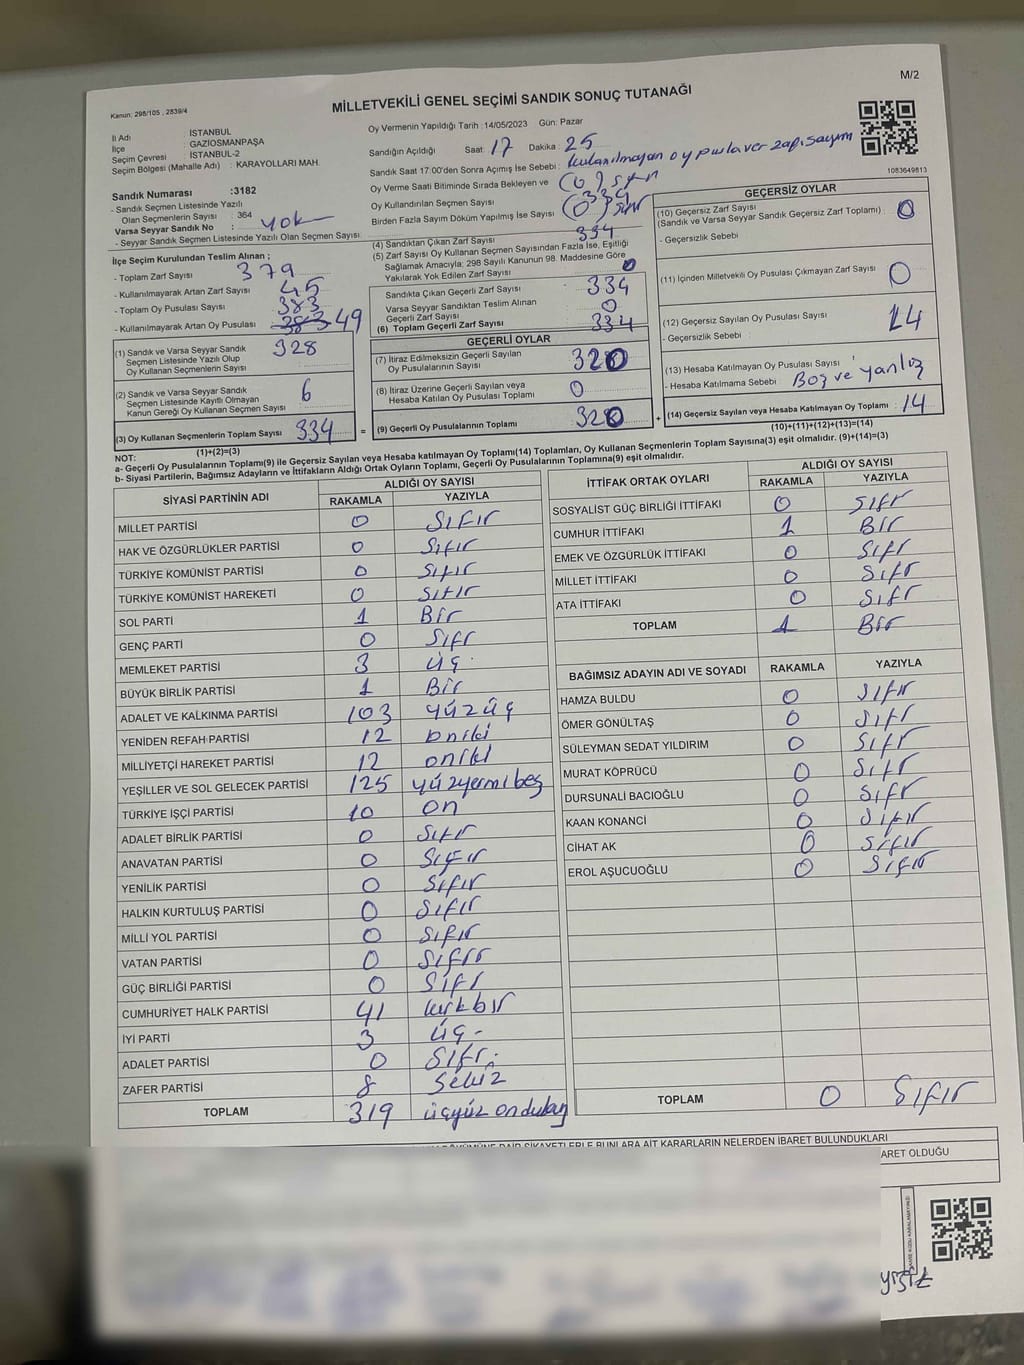 M/2
Kanun: 298/105 , 2839/4
MİLLETVEKİLİ GENEL SEÇİMİ SANDIK SONUÇ TUTANAĞI
İl Adı : İSTANBUL
İlçe : GAZİOSMANPAŞA
Seçim Çevresi : İSTANBUL-2
Seçim Bölgesi (Mahalle Adı) : KARAYOLLARI MAH.
Oy Vermenin Yapıldığı Tarih :14/05/2023 Gün: Pazar
Sandığın Açıldığı Saat: 17 Dakika : 25
Sandık Saat 17:00'den Sonra Açımış İse Sebebi :
Oy Verme Saati Bitiminde Sırada Bekleyen ve
Oy Kullandırılan Seçmen Sayısı
Birden Fazla Sayım Döküm Yapılmış İse Sayısı
1083649813
Sandık Numarası :3182
- Sandık Seçmen Listesinde Yazılı
Olan Seçmenlerin Sayısı : 364
Varsa Seyyar Sandık No : yok
- Seyyar Sandık Seçmen Listesinde Yazılı Olan Seçmen Sayısı:
İlçe Seçim Kurulundan Teslim Alınan ;
- Toplam Zarf Sayısı : 379
- Kullanılmayarak Artan Zarf Sayısı : 45
- Toplam Oy Pusulası Sayısı : 383
- Kullanılmayarak Artan Oy Pusulası : 49
(1) Sandık ve Varsa Seyyar Sandık
Seçmen Listesinde Yazılı Olup
Oy Kullanan Seçmenlerin Sayısı 328
(2) Sandık ve Varsa Seyyar Sandık
Seçmen Listesinde Kayıtlı Olmayan
Kanun Gereği Oy Kullanan Seçmen Sayısı 6
(3) Oy Kullanan Seçmenlerin Toplam Sayısı 334
(1)+(2)=(3)
(4) Sandıktan Çıkan Zarf Sayısı 334
(5) Zarf Sayısı Oy Kullanan Seçmen Sayısından Fazla İse, Eşitliği
Sağlamak Amacıyla; 298 Sayılı Kanunun 98. Maddesine Göre
Yakılarak Yok Edilen Zarf Sayısı 0
Sandıkta Çıkan Geçerli Zarf Sayısı 334
Varsa Seyyar Sandıktan Teslim Alınan
Geçerli Zarf Sayısı 0
(6) Toplam Geçerli Zarf Sayısı 334
GEÇERLİ OYLAR
(7) İtiraz Edilmeksizin Geçerli Sayılan
Oy Pusulalarının Sayısı 320
(8) İtiraz Üzerine Geçerli Sayılan veya
Hesaba Katılan Oy Pusulası Toplamı 0
= (9) Geçerli Oy Pusulalarının Toplamı 320 +
GEÇERSİZ OYLAR
(10) Geçersiz Zarf Sayısı
(Sandık ve Varsa Seyyar Sandık Geçersiz Zarf Toplamı) : 0
- Geçersizlik Sebebi :
(11) İçinden Milletvekili Oy Pusulası Çıkmayan Zarf Sayısı 0
(12) Geçersiz Sayılan Oy Pusulası Sayısı : 14
- Geçersizlik Sebebi :
(13) Hesaba Katılmayan Oy Pusulası Sayısı :
- Hesaba Katılmama Sebebi : Boş ve yanlız
(14) Geçersiz Sayılan veya Hesaba Katılmayan Oy Toplamı : 14
(10)+(11)+(12)+(13)=(14)
NOT:
a- Geçerli Oy Pusulalarının Toplamı(9) ile Geçersiz Sayılan veya Hesaba katılmayan Oy Toplamı(14) Toplamları, Oy Kullanan Seçmenlerin Toplam Sayısına(3) eşit olmalıdır. (9)+(14)=(3)
b- Siyasi Partilerin, Bağımsız Adayların ve İttifakların Aldığı Ortak Oyların Toplamı, Geçerli Oy Pusulalarının Toplamına(9) eşit olmalıdır.
SİYASİ PARTİNİN ADI ALDIĞI OY SAYISI
RAKAMLA YAZIYLA
MİLLET PARTİSİ 0 Sıfır
HAK VE ÖZGÜRLÜKLER PARTİSİ 0 Sıfır
TÜRKİYE KOMÜNİST PARTİSİ 0 Sıfır
TÜRKİYE KOMÜNİST HAREKETİ 0 Sıfır
SOL PARTİ 1 Bir
GENÇ PARTİ 0 Sıfr
MEMLEKET PARTİSİ 3 üç
BÜYÜK BİRLİK PARTİSİ 1 Bir
ADALET VE KALKINMA PARTİSİ 103 yüzüç
YENİDEN REFAH PARTİSİ 12 oniki
MİLLİYETÇİ HAREKET PARTİSİ 12 oniki
YEŞİLLER VE SOL GELECEK PARTİSİ 125 yüzyermibeş
TÜRKİYE İŞÇİ PARTİSİ 10 on
ADALET BİRLİK PARTİSİ 0 Sıfr
ANAVATAN PARTİSİ 0 Sıfır
YENİLİK PARTİSİ 0 Sıfır
HALKIN KURTULUŞ PARTİSİ 0 Sıfır
MİLLİ YOL PARTİSİ 0 Sıfır
VATAN PARTİSİ 0 Sıfır
GÜÇ BİRLİĞİ PARTİSİ 0 Sıfr
CUMHURİYET HALK PARTİSİ 41 kırkbir
İYİ PARTİ 3 üç-
ADALET PARTİSİ 0 Sıfr.
ZAFER PARTİSİ 8 Sekiz
TOPLAM 319
İTTİFAK ORTAK OYLARI ALDIĞI OY SAYISI
RAKAMLA YAZIYLA
SOSYALİST GÜÇ BİRLİĞİ İTTİFAKI 0 Sıfr
CUMHUR İTTİFAKI 1 Bir
EMEK VE ÖZGÜRLÜK İTTİFAKI 0 Sıfr
MİLLET İTTİFAKI 0 Sıfr
ATA İTTİFAKI 0 Sıfr
TOPLAM 1 Bir
BAĞIMSIZ ADAYIN ADI VE SOYADI RAKAMLA YAZIYLA
HAMZA BULDU 0 Sıfır
ÖMER GÖNÜLTAŞ 0 Sıfr
SÜLEYMAN SEDAT YILDIRIM 0 Sıfr
MURAT KÖPRÜCÜ 0 Sıfr
DURSUNALİ BACIOĞLU 0 Sıfr
KAAN KONANCİ 0 Sıfır
CİHAT AK 0 Sıfır
EROL AŞUCUOĞLU 0 Sıfır
TOPLAM 0 Sıfır
DAİR ŞİKAYETLERLE BUNLARA AİT KARARLARIN NELERDEN İBARET BULUNDUKLARI
ARET OLDUĞU